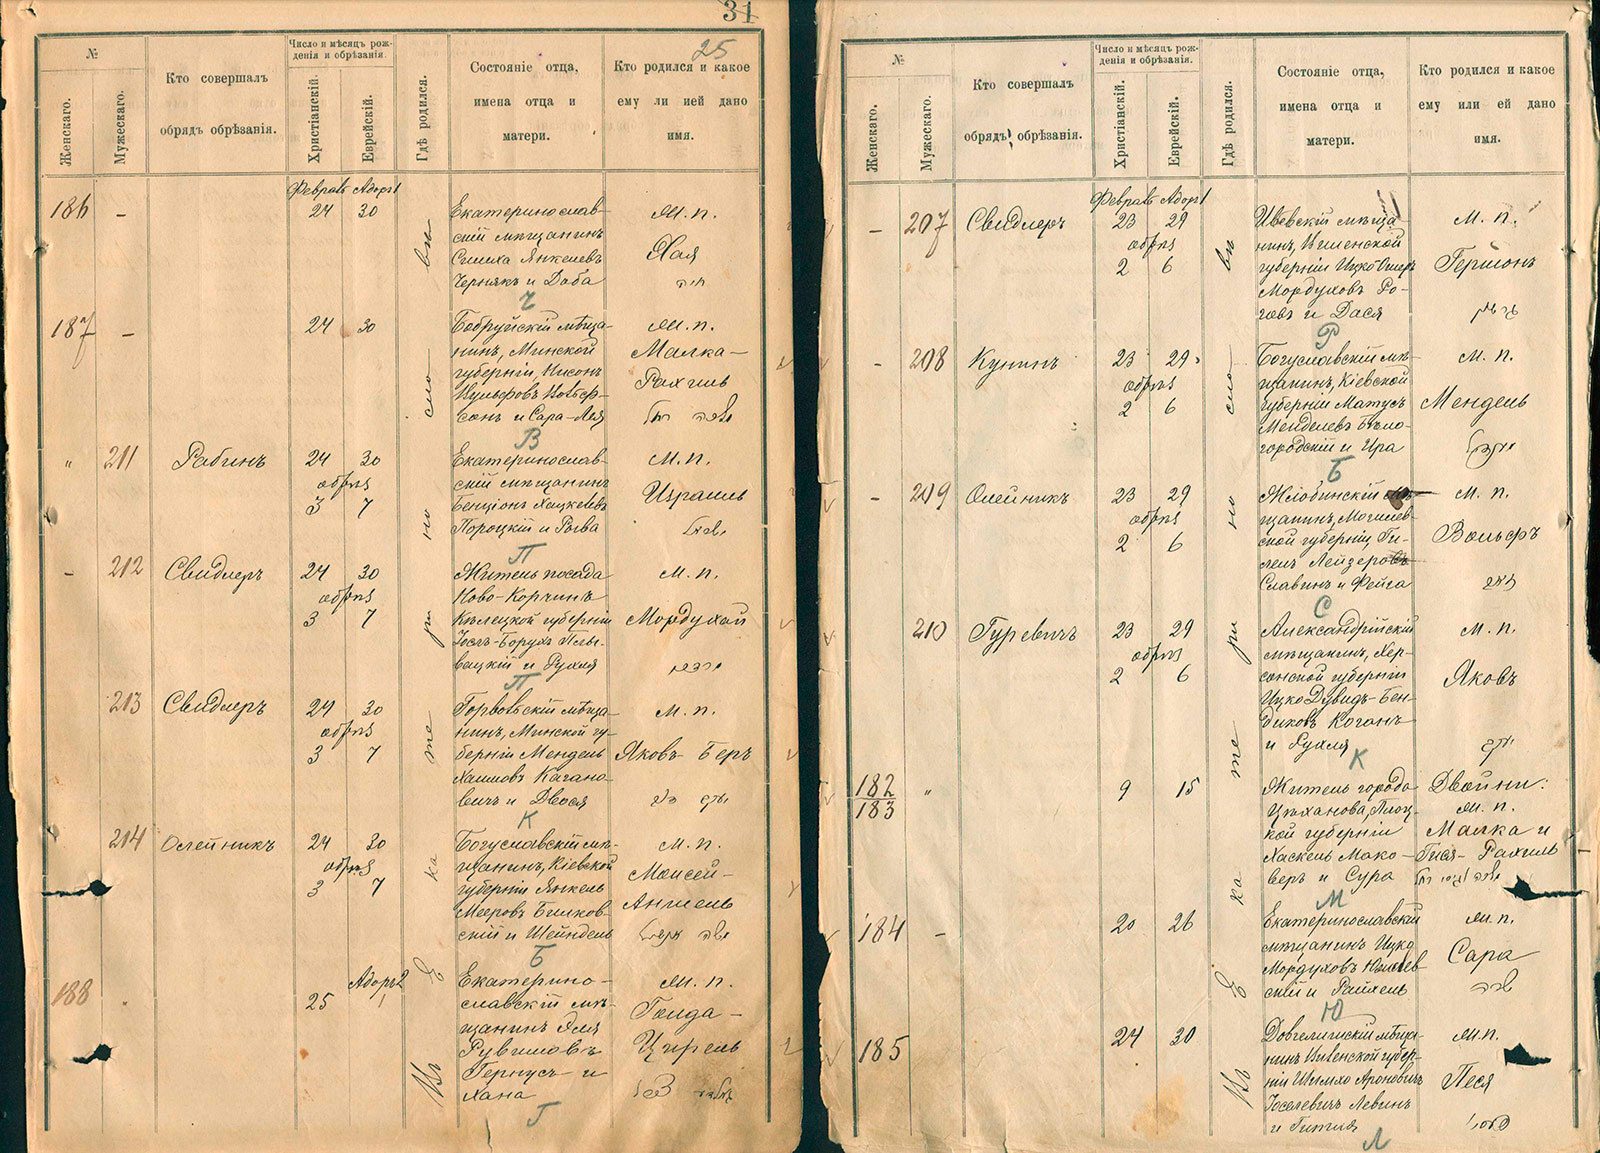 31
25
№
Женскаго.
Мужескаго.
Кто совершалъ
обрядъ обрѣзанія.
Число и мѣсяцъ рож-
денія и обрѣзанія.
Христіанскій.
Еврейскій.
Гдѣ родился.
Состояніе отца,
имена отца и
матери.
Кто родился и какое
ему ли ией дано
имя.
Февраль Адоръ 1
Въ Екатеринославѣ
186 -
24 30
Екатеринослав-
скій мѣщанинъ
Симха Янкелевъ
Чернякъ и Даба
Ч
М. п.
Хая
חיה
187 -
24 30
Бобруйскій мѣща-
нинъ, Минской
губерніи, Нисонъ
Вульфовъ Вольф-
сонъ и Сара-Лея
В
М. п.
Малка-
Рахиль
מלכה רחל
" 211 Рабинъ
24 30
обрѣз
3 7
Екатеринослав-
скій мѣщанинъ
Бенціонъ Хацкелевъ
Пороцкій и Рысва
П
М. п.
Израиль
ישראל
- 212 Свидлеръ
24 30
обрѣз
3 7
Житель посада
Ново-Корчинъ
Кѣлецкой губерніи
Іосъ-Борухъ Плы-
вацкій и Рухля
П
М. п.
Мордухай
מרדכי
213 Свидлеръ
24 30
обрѣз
3 7
Горвольскій мѣща-
нинъ, Минской гу-
берніи Мендель
Хаимовъ Кагано-
вичъ и Двося
К
М. п.
Яковъ-Беръ
יעקב בער
214 Олейникъ
24 30
обрѣз
3 7
Богуславскій мѣ-
щанинъ, Кіевской
губерніи Янкель
Мееровъ Билков-
скій и Шейндель
Б
М. п.
Моисей-
Аншель
משה אנשיל
Адоръ 2
188 "
25 1
Екатерино-
славскій мѣ-
щанинъ Эля
Рувиловъ
Гернусъ и
Хана
Г
М. п.
Голда-
Цирель
№
Женскаго.
Мужескаго.
Кто совершалъ
обрядъ обрѣзанія.
Число и мѣсяцъ рож-
денія и обрѣзанія.
Христіанскій.
Еврейскій.
Гдѣ родился.
Состояніе отца,
имена отца и
матери.
Кто родился и какое
ему или ей дано
имя.
Февраль Адоръ 1
Въ Екатеринославѣ
- 207 Свидлеръ
23 29
обрѣз
2 6
Ивевскій мѣща
нинъ, Виленской
губерніи Ицко-Ошеръ
Мордуховъ Ро-
говъ и Дася
Р
М. п.
Гершонъ
גרשון
- 208 Кунинъ
23 29
обрѣз
2 6
Богуславскій мѣ-
щанинъ, Кіевской
губерніи Матусъ
Менделевъ Бѣло-
городскій и Ира
Б
М. п.
Мендель
מענדל
- 209 Олейникъ
23 29
обрѣз
2 6
Жлобинскій мѣ-
щанинъ, Могилев-
ской губерніи, Ги-
лель Лейзеровъ
Славинъ и Фейга
С
М. п.
Вольфъ
210 Гуревичъ
23 29
обрѣз
2 6
Александрійскій
мѣщанинъ, Хер-
сонской губерніи
Ицко Дувидъ-Бен-
диковъ Коганъ
и Рухля
К
М. п.
Яковъ
יעקב
182
183
"
9 15
Житель города
Цѣханова, Плоц-
кой губерніи
Хаскель Мако-
веръ и Сура
М
Двойни:
М. п.
Малка и
Гися-Рахиль
184 -
20 26
Екатеринославскій
мѣщанинъ Ицко
Мордуховъ
скій и Райхель
Ю
М. п.
Сара
שרה
185
24 30
Довгелишскій мѣща-
нинъ Виленской губер-
ніи Шлиомо Ароновичъ
Іоселевичъ Левинъ
и Гитля
Л
М. п.
Песя